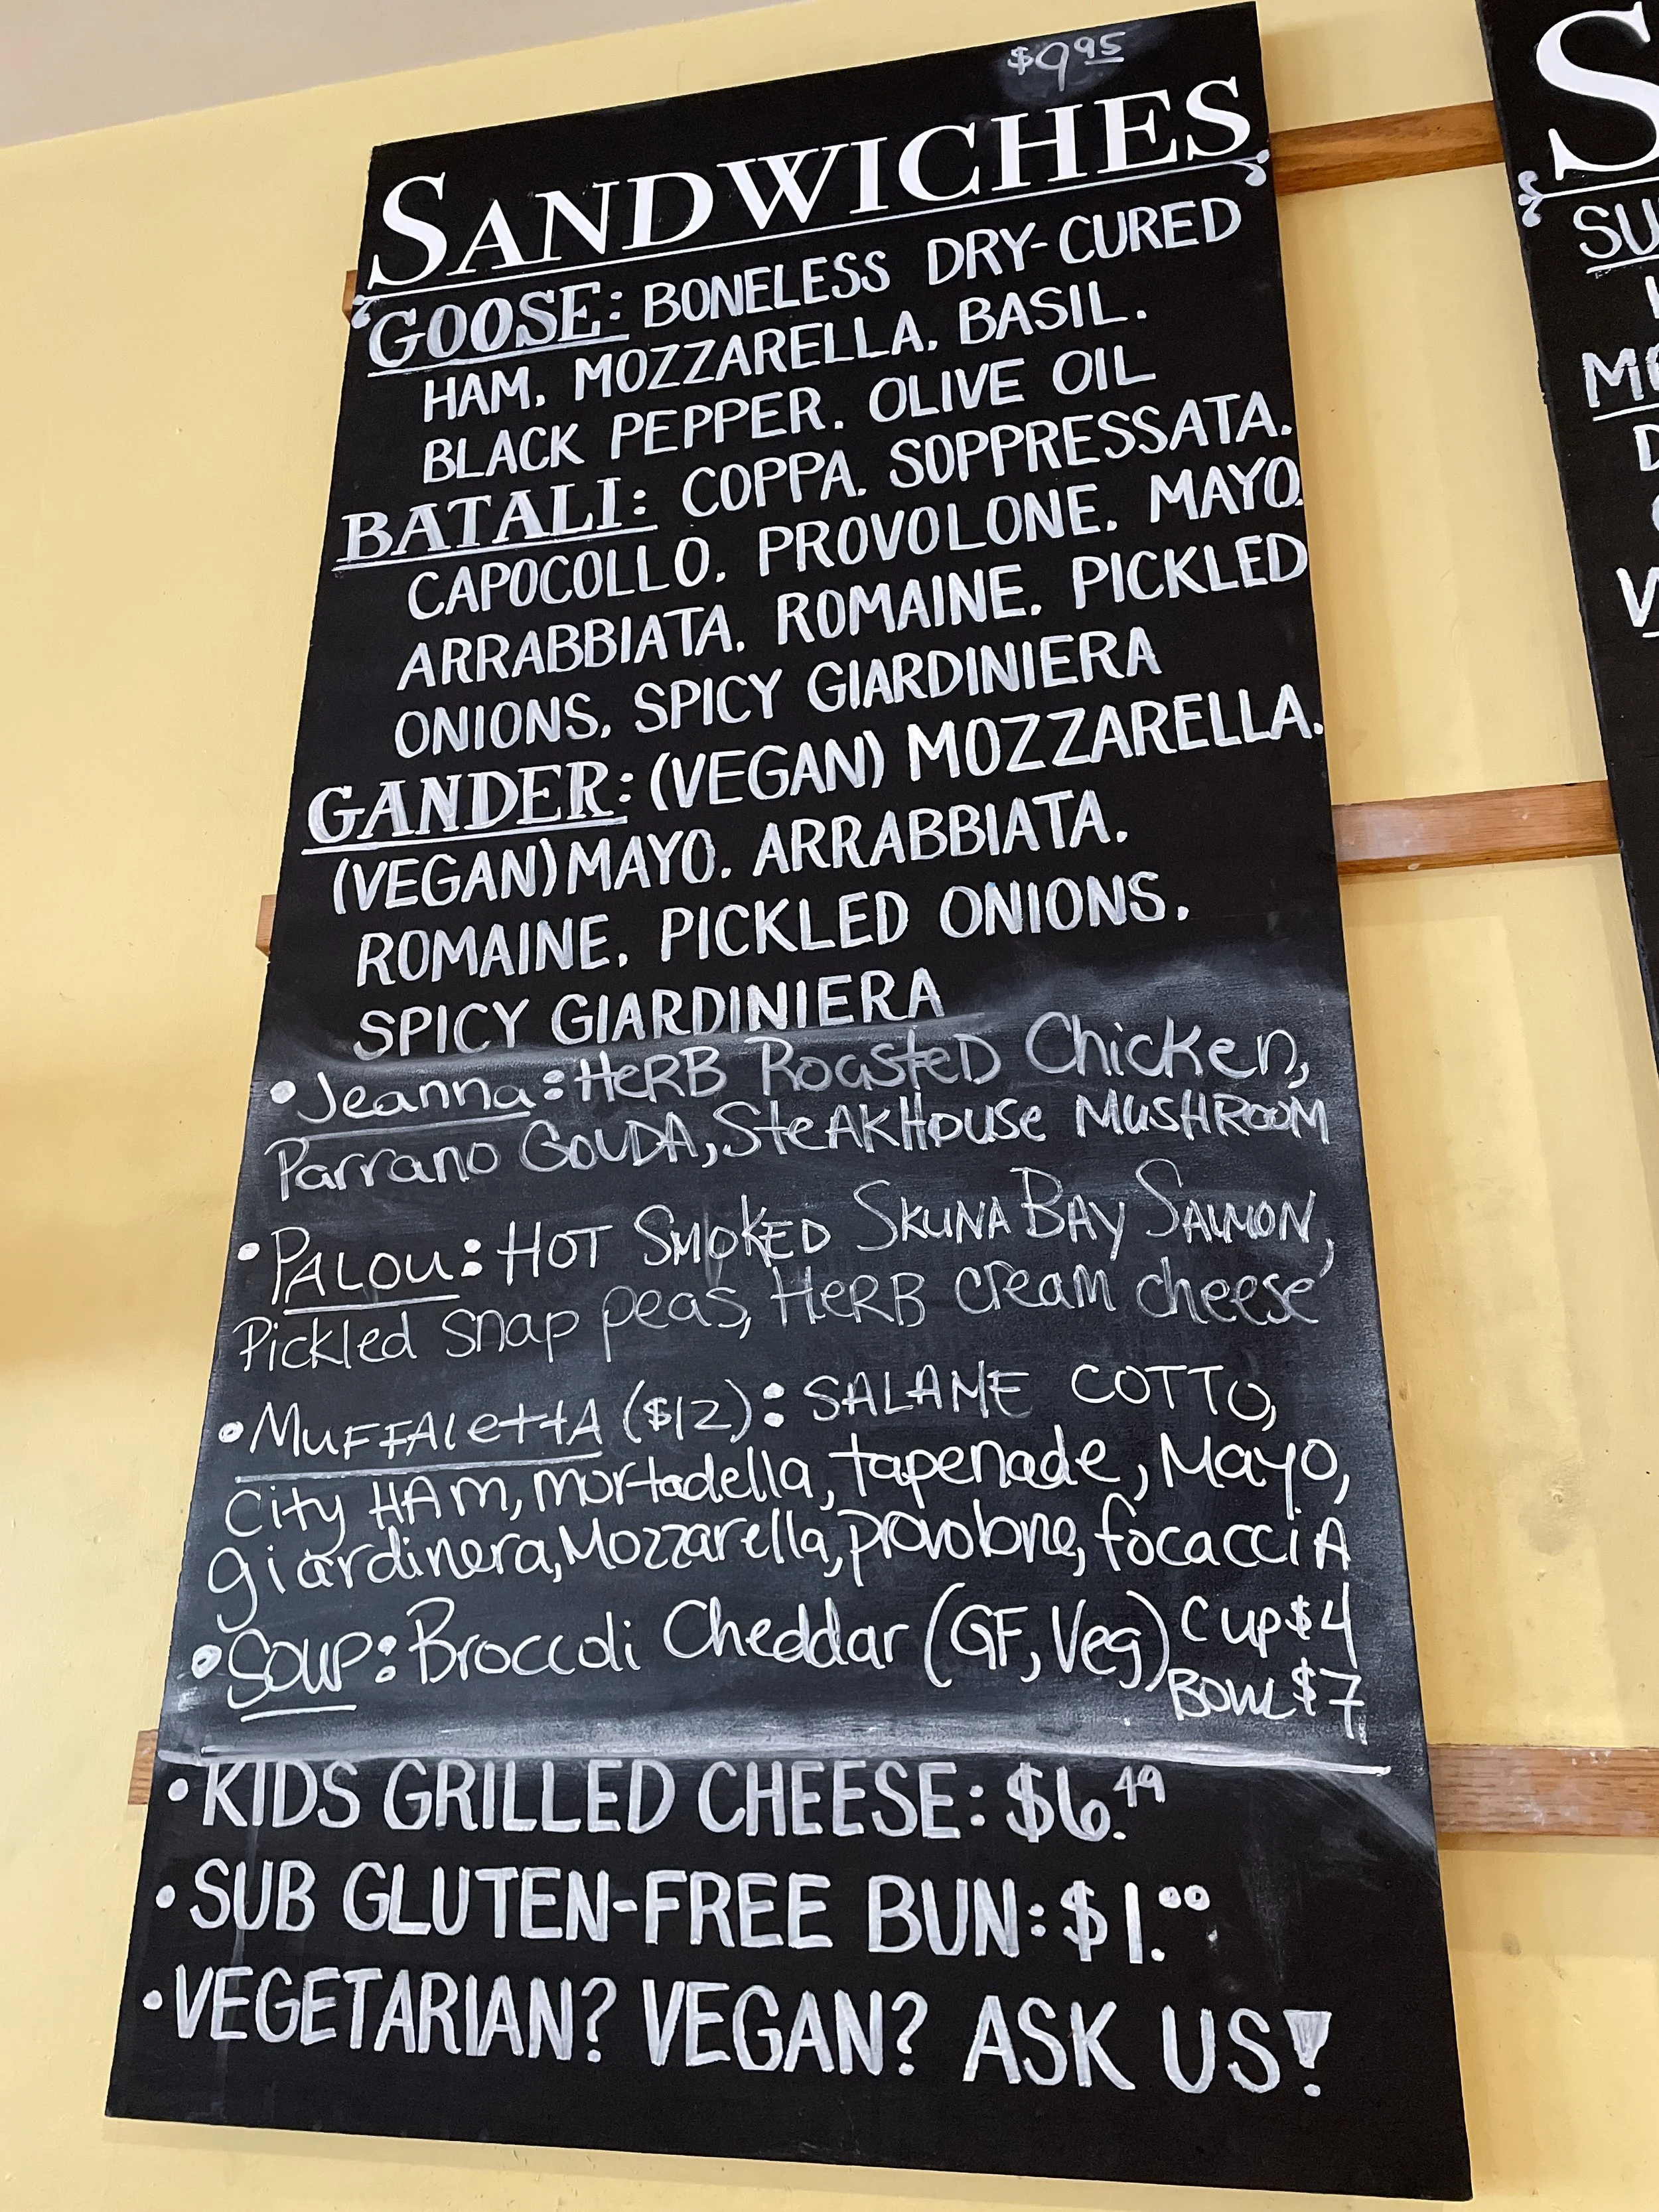 $9.95
SANDWICHES
GOOSE: BONELESS DRY-CURED
HAM. MOZZARELLA. BASIL.
BLACK PEPPER. OLIVE OIL
BATALI: COPPA. SOPPRESSATA.
CAPOCOLLO. PROVOLONE. MAYO.
ARRABBIATA. ROMAINE. PICKLED
ONIONS. SPICY GIARDINIERA
GANDER: (VEGAN) MOZZARELLA.
(VEGAN) MAYO. ARRABBIATA.
ROMAINE. PICKLED ONIONS.
SPICY GIARDINIERA
• Jeanna: HERB Roasted Chicken,
Parrano GOUDA, SteAKHOUse MUSHROOM
• PALOU: HOT SMOKED SKUNA BAY SALMON,
Pickled snap peas, HeRB cream cheese
• MuFFAlettA ($12): SALAME COTTO,
City HAm, mortadella, tapenade, Mayo,
giardinera, Mozzarella, provolone, focacciA
• SOUP: Broccoli Cheddar (GF, Veg) Cup $4
Bowl $7
• KIDS GRILLED CHEESE: $6.49
• SUB GLUTEN-FREE BUN: $1.00
• VEGETARIAN? VEGAN? ASK US!
S
SU
V